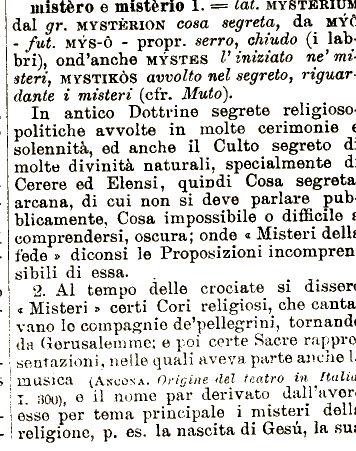 mistèro e mistério 1. = lat. MYSTERIUM
dal gr. MYSTÈRION cosa segreta, da MÝÔ
- fut. MÝS-Ô - propr. serro, chiudo (i lab-
bri), ond'anche MYSTES l'iniziato ne' mi-
steri, MYSTIKÒS avvolto nel segreto, riguar-
dante i misteri (cfr. Muto).
In antico Dottrine segrete religioso-
politiche avvolte in molte cerimonie e
solennità, ed anche il Culto segreto di
molte divinità naturali, specialmente di
Cerere ed Elensi, quindi Cosa segreta,
arcana, di cui non si deve parlare pub-
blicamente, Cosa impossibile o difficile a
comprendersi, oscura; onde « Misteri della
fede » diconsi le Proposizioni incompren-
sibili di essa.
2. Al tempo delle crociate si dissero
« Misteri » certi Cori religiosi, che canta-
vano le compagnie de'pellegrini, tornando
da Gerusalemme; e poi certe Sacre rappre-
sentazioni, nelle quali aveva parte anche la
musica (ANCONA. Origine del teatro in Italia
I. 300), e il nome par derivato dall'avere
esse per tema principale i misteri della
religione, p. es. la nascita di Gesú, la sua